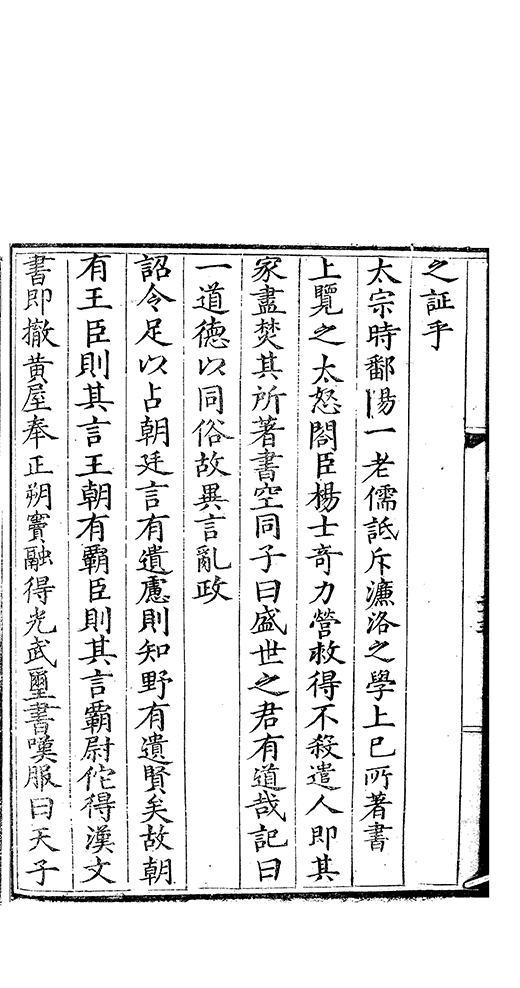 之証乎
太宗時鄱陽一老儒詆斥濂洛之學上己所著書
上覽之太怒閣臣楊士竒力營救得不殺遣人即其
家盡焚其所著書空同子曰盛世之君有道哉記曰
一道德以同俗故異言亂政
詔令足以占朝廷言有遺慮則知野有遺賢矣故朝
有王臣則其言王朝有覇臣則其言覇尉佗得漢文
書即撤黄屋奉正朔竇融得光武璽書嘆服曰天子